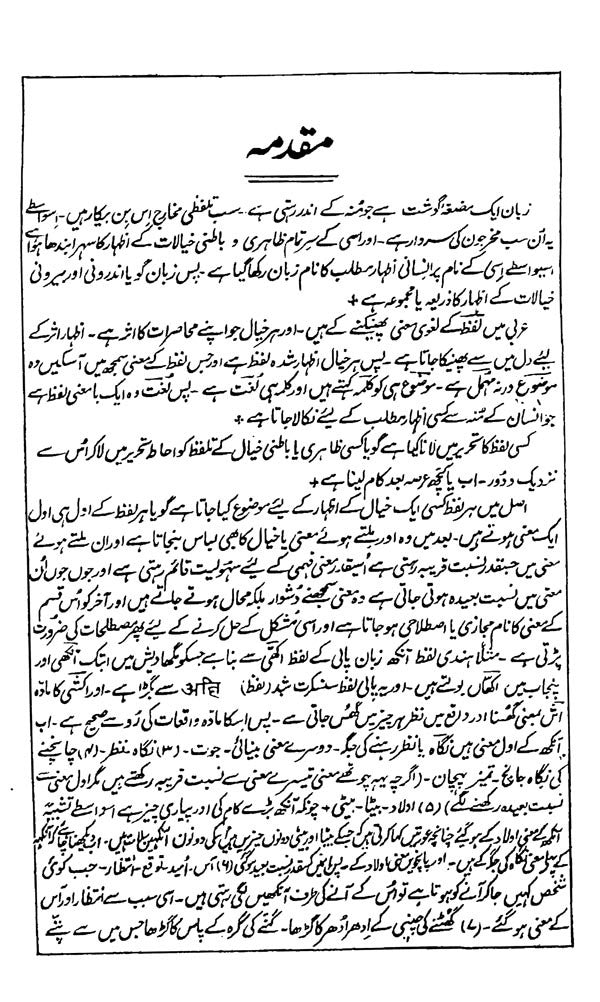 مقدمہ
زبان ایک مضغۂ گوشت ہے جو مُنہ کے اندر رہتی ہے۔ سب تلفظی مخارج اِس بِن بیکار ہیں۔ اِسواسطے
یہ اُن سب مخرجوں کی سردار ہے۔ اور اسی کے سر تمام ظاہری و باطنی خیالات کے اظہار کا سہرا بندھا ہوا ہے
اسیواسطے اِسی کے نام پر اِنسانی اظہار مطلب کا نام زبان رکھا گیا ہے۔ پس زبان گویا اندرونی اور بیرونی
خیالات کے اظہار کا ذریعہ یا مجموعہ ہے +
عربی میں لفظ کے لغوی معنی پھینکنے کے ہیں۔ اور ہر خیال جو اپنے محاصرات کا اثر ہے۔ اظہار اثر کے
لیئے دل میں سے پھینکا جاتا ہے۔ پس ہر خیال اظہار شدہ لفظ ہے اور جس لفظ کے معنی سمجھ میں آ سکیں وہ
موضوع ورنہ مہمل ہے۔ موضوع ہی کو کلمہ کہتے ہیں اور کلمہ ہی لُغت ہے۔ پس لُغت وہ ایک بامعنی لفظ ہے
جو انسان کے مُنہ سے کسی اظہار مطلب کے لیئے نکالا جاتا ہے +
کسی لفظ کا تحریر میں لانا کیا ہے گویا کسی ظاہری یا باطنی خیال کے تلفظ کو احاطۂ تحریر میں لا کر اُس سے
نزدیک و دُور۔ اب یا کچھ عرصہ بعد کام لینا ہے +
اصل میں ہر لفظ کسی ایک خیال کے اظہار کے لیئے موضوع کیا جاتا ہے گویا ہر لفظ کے اول ہی اول
ایک معنی ہوتے ہیں۔ بعد میں وہ اور ملتے ہوئے معنی یا خیال کا بھی لباس بنجاتا ہے اور ان ملتے ہوئے
معنی میں جسقدر نسبت قریبہ رہتی ہے اُسیقدر معنی فہمی کے لیئے سہولیت قائم رہتی ہے اور جوں جوں اُن
معنی میں نسبت بعیدہ ہوتی جاتی ہے وہ معنی سمجھنے دُشوار بلکہ محال ہوتے جاتے ہیں اور آخر کو اُس قسم
کے معنی کا نام مجازی یا اصطلاحی ہو جاتا ہے اور اسی مُشکل کے حل کرنے کے لیئے پھر مصطلحات کی ضرورت
پڑتی ہے۔ مثلاً ہندی لفظ آنکھ زبان پالی کے لفظ اکھّی سے بنا ہے جسکو گھا دیش میں ابتک آنکھی اور
پنجاب میں اکھّاں بولتے ہیں۔ اور یہ پالی لفظ سنسکرت شبد (لفظ) अक्षि سے بگڑا ہے۔ اور اکشی کا مادّہ
اَش بمعنی گھسنا اور در واقع میں نظر ہر چیز میں گھُس جاتی ہے۔ پس اِسکا مادّہ واقعات کی رُو سے صحیح ہے۔ اب
آنکھ کے اول معنی ہیں نگاہ یا نظر رہنے کی جگہ۔ دوسرے معنی بینائی۔ جوت۔ (۳) نگاہ نظر۔ (۴) جانچنے
کی نگاہ جانچ۔ تمیز پہچان۔ (اگرچہ یہہ چوتھے معنی تیسرے معنی سے نسبت قریبہ رکھتے ہیں مگر اول معنی سے
نسبت بعیدہ رکھنے لگے) (۵) اولاد۔ بیٹا۔ بیٹی + چونکہ آنکھ بڑے کام کی اور پیاری چیز ہے اسواسطے تشبیہً
آنکھ کے معنی اولاد کے ہو گئے چنانچہ عورتیں کہا کرتی ہیں کہ جسکے بیٹا اور بیٹی دونوں چیزیں ہیں اُسکی دونوں آنکھیں سلامت ہیں۔ اب دیکھنا چاہیئے کہ آنکھ
کے پہلے معنی نگاہ کی جگہ کے ہیں۔ اور پانچویں معنی اولاد کے۔ پس انمیں کسقدر نسبت بعید ہو گئی (۶) آس۔ اُمید۔ توقع۔ انتظار۔ جب کوئی
شخص کہیں جا کر آنے کو ہوتا ہے تو اُس کے آنے کی طرف آنکھیں لگی رہتی ہیں۔ اسی سبب سے انتظار اور آس
کے معنی ہو گئے۔ (۷) گھُٹنے کی چپنی کے اِدھر اُدھر کا گڑھا۔ گنّے کی گرہ کے پاس کا گڑھا جس میں سے پتّے